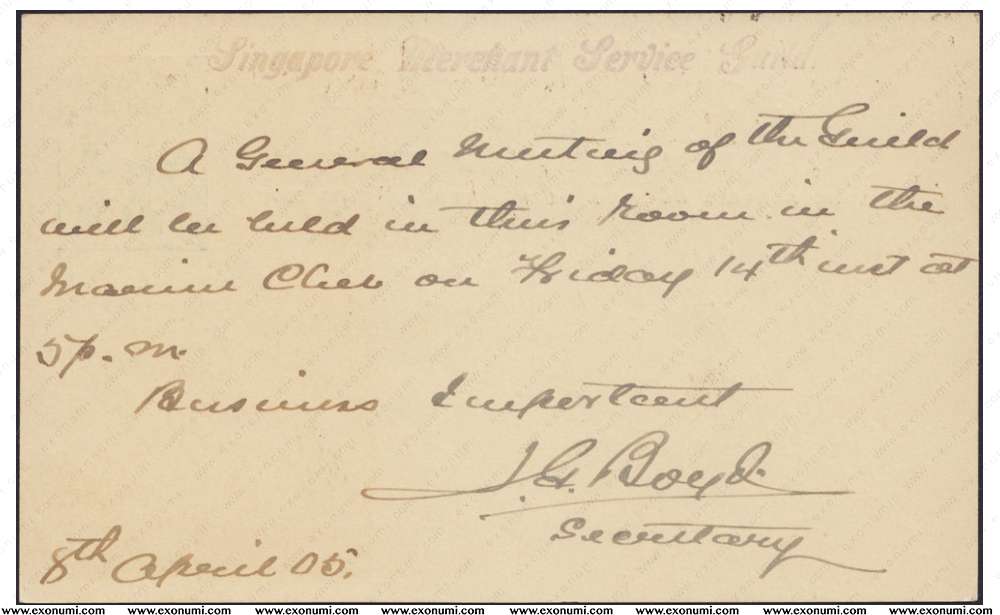 Singapore Merchant Service Guild.
A General Meeting of the Guild
will be held in this room in the
Marine Club on Friday 14th inst at
5 p.m.
Business Important
J. G. Boyd.
Secretary
8th April 05.
www.exonumi.com www.exonumi.com www.exonumi.com www.exonumi.com www.exonumi.com www.exonumi.com www.exonumi.com www.exonumi.com